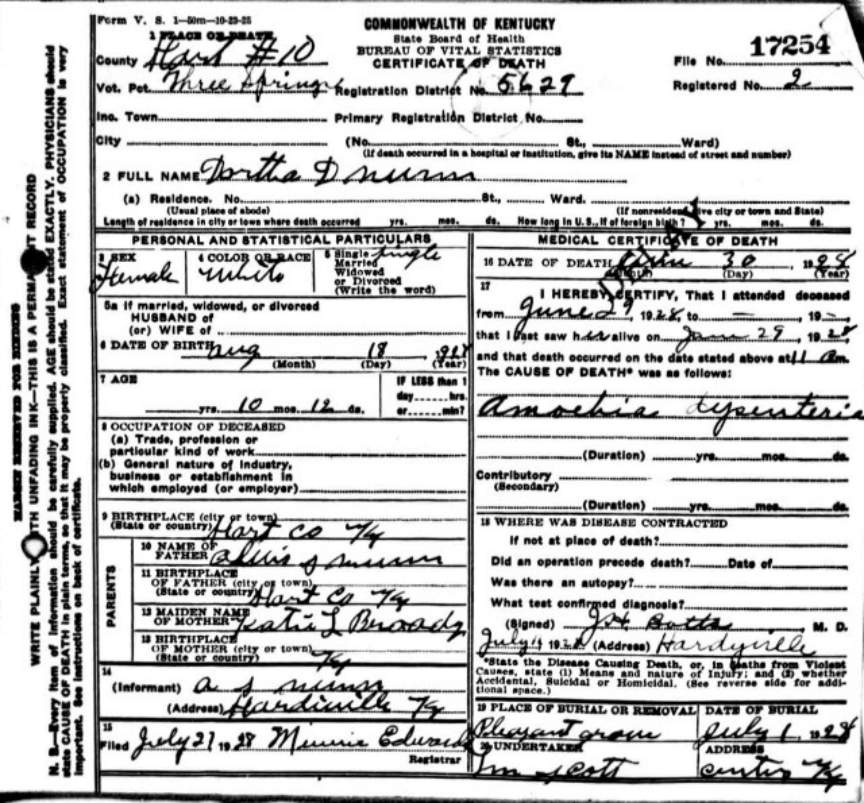 Form V. S. 1—50m—10-23-25
COMMONWEALTH OF KENTUCKY
State Board of Health
BUREAU OF VITAL STATISTICS
CERTIFICATE OF DEATH
17254
1 PLACE OF DEATH
County Hart #10
File No.
Vot. Pct. Three Springs Registration District No. 5629
Registered No. 2
Inc. Town Primary Registration District No.
City (No. St., Ward)
(If death occurred in a hospital or institution, give its NAME instead of street and number)
2 FULL NAME D Nunn
(a) Residence. No. St., Ward.
(Usual place of abode) (If nonresident give city or town and State)
Length of residence in city or town where death occurred yrs. mos. ds. How long in U. S., if of foreign birth? yrs. mos. ds.
PERSONAL AND STATISTICAL PARTICULARS
3 SEX 4 COLOR OR RACE 5 Single Married Widowed or Divorced (Write the word)
Female White Single
5a If married, widowed, or divorced
HUSBAND of
(or) WIFE of
6 DATE OF BIRTH Aug 18
(Month) (Day) (Year)
7 AGE
yrs. 10 mos. 12 ds.
IF LESS than 1
day hrs.
or min?
8 OCCUPATION OF DECEASED
(a) Trade, profession or
particular kind of work
(b) General nature of industry,
business or establishment in
which employed (or employer)
9 BIRTHPLACE (city or town)
(State or country) Hart Co Ky
PARENTS
10 NAME OF
FATHER S Nunn
11 BIRTHPLACE
OF FATHER (city or town)
(State or country) Hart Co Ky
12 MAIDEN NAME
OF MOTHER Katie L
13 BIRTHPLACE
OF MOTHER (city or town)
(State or country) Ky
14
(Informant) A S Nunn
(Address) Hardiville Ky
15
Filed July 27 1928 Minnie Edwards
Registrar
MEDICAL CERTIFICATE OF DEATH
16 DATE OF DEATH 30 1928
(Month) (Day) (Year)
17
I HEREBY CERTIFY, That I attended deceased
from June 29, 1928 to — , 19—
that I last saw her alive on 29, 1928
and that death occurred on the date stated above at 11 am.
The CAUSE OF DEATH* was as follows:
Amoebia dysenteria
(Duration) yrs. mos. ds.
Contributory
(Secondary)
(Duration) yrs. mos. ds.
18 WHERE WAS DISEASE CONTRACTED
If not at place of death?
Did an operation precede death? Date of
Was there an autopsy?
What test confirmed diagnosis?
(Signed) Botts M. D.
July 1928 (Address) Hardyville
*State the Disease Causing Death, or, in deaths from Violent
Causes, state (1) Means and nature of Injury; and (2) whether
Accidental, Suicidal or Homicidal. (See reverse side for addi-
tional space.)
19 PLACE OF BURIAL OR REMOVAL DATE OF BURIAL
Pleasant Grove July 1, 1928
20 UNDERTAKER ADDRESS
Scott Center Ky
MARGIN RESERVED FOR BINDING
WRITE PLAINLY WITH UNFADING INK—THIS IS A PERMANENT RECORD
N. B.—Every item of information should be carefully supplied. AGE should be stated EXACTLY. PHYSICIANS should
state CAUSE OF DEATH in plain terms, so that it may be properly classified. Exact statement of OCCUPATION is very
important. See instructions on back of certificate.